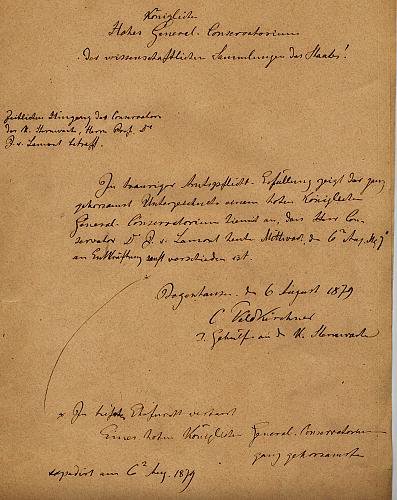 Königliches
Hohes General-Conservatorium
der wissenschaftlichen Sammlungen des Staates!
Zeitliches Hingang des Conservators
der K. Sternwarte, Herrn Prof. Dr
J. v. Lamont betreff.
In trauriger Amtspflicht-Erfüllung zeigt der ganz
gehorsamst Unterzeichnete einem hohen Königlichen
General-Conservatorium hiemit an, dass Herr Con-
servator Dr J. v. Lamont heute Mittwoch, den 6ten Aug.
an Entkräftung sanft verschieden ist.
Bogenhausen, den 6. August 1879
C. Feldkirchner
I. Gehülfe an der K. Sternwarte
x In tiefster Ehrfurcht verharrt
Eines hohen Königlichen General-Conservatoriums
ganz gehorsamster
expedirt am 6ten Aug. 1879